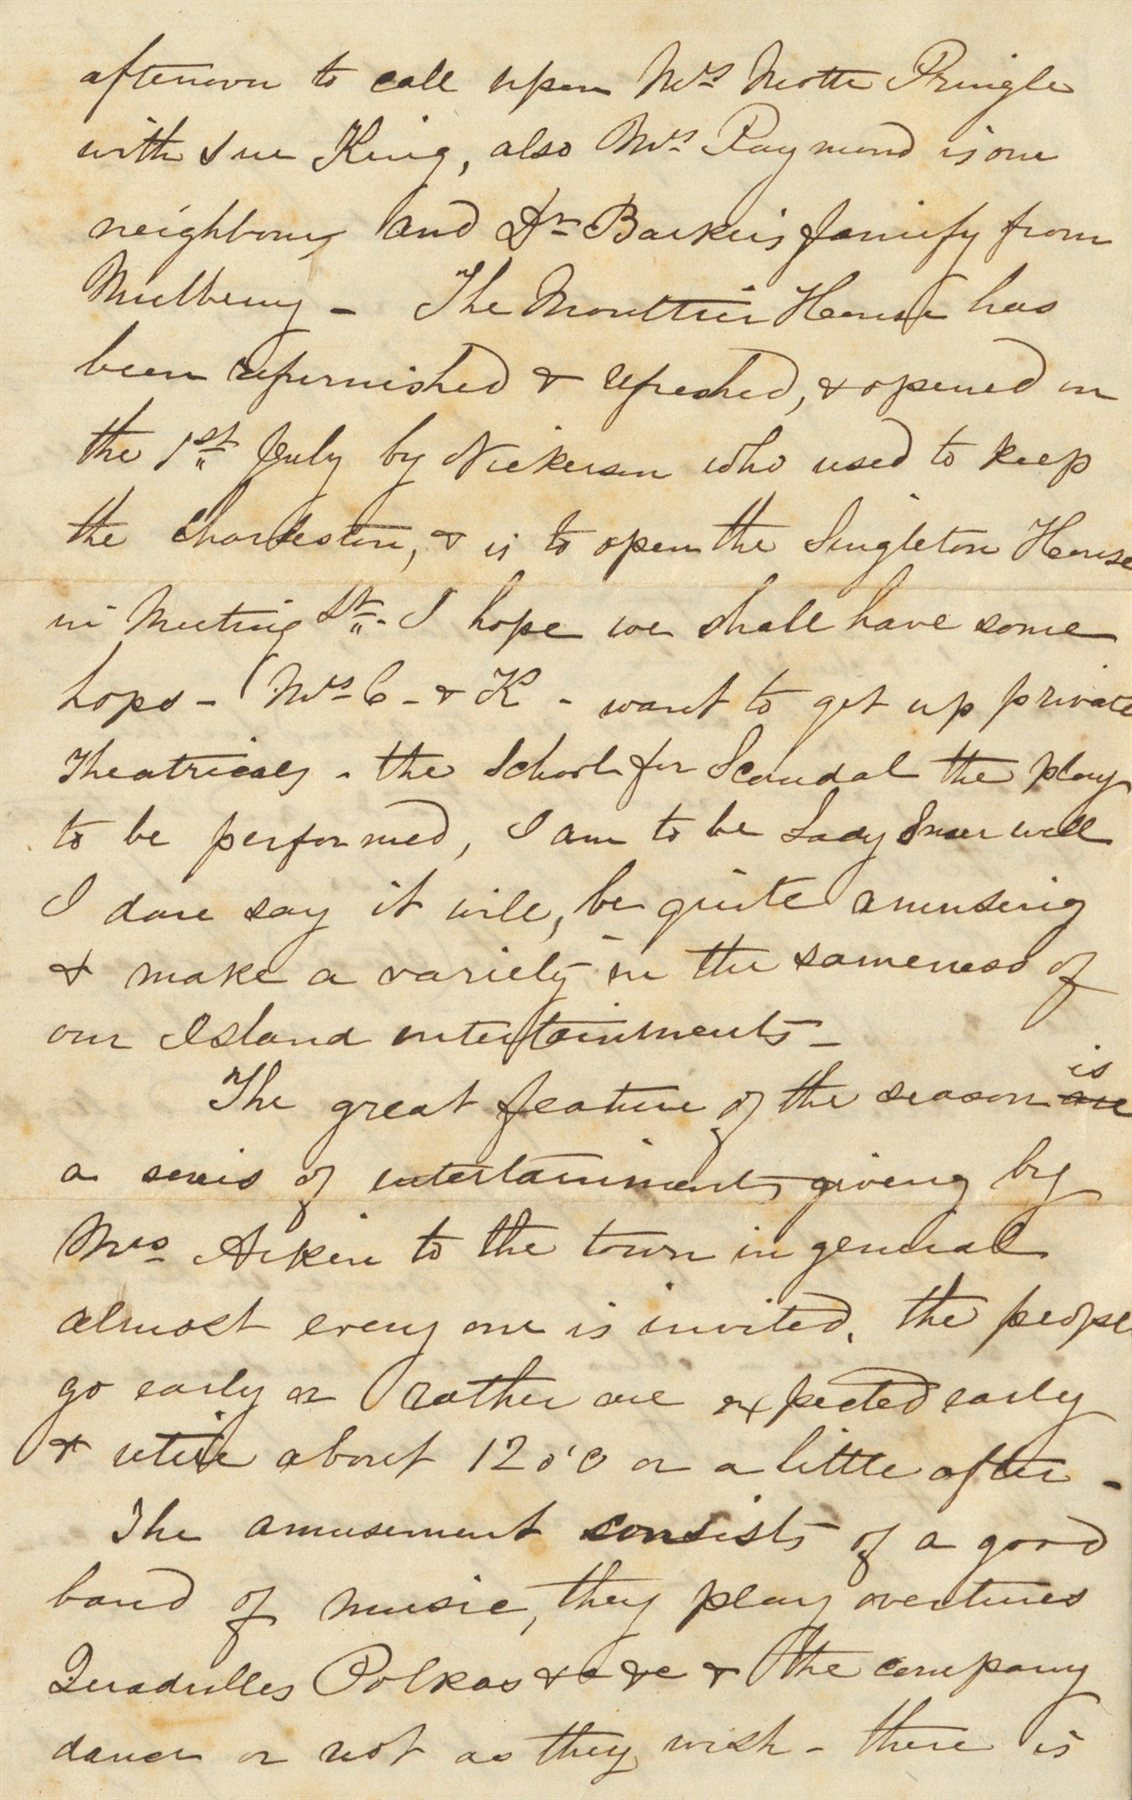 afternoon to call upon Mrs Motte Pringle
with Sue King, also Mrs Raymond is our
neighbour, and Dr Barker's family from
Mulberry - The Moultrie House has
been refurnished & refreshed, & opened on
the 1st July by Nickerson who used to keep
the Charleston, & is to open the Singleton House
in Meeting St. - I hope we shall have some
hops - Mrs C - & K - want to get up private
Theatricals - the School for Scandal the play
to be performed, I am to be Lady Sneerwell
I dare say it will, be quite amusing
& make a variety in the sameness of
our Island entertainments -
The great feature of the season is are
a series of entertainments giving by
Mrs Aiken to the town in general
almost every one is invited, the people
go early or rather are expected early
& retire about 12 o'c or a little after -
The amusement consists of a good
band of music, they play overtures
Quadrilles Polkas &c &c & the company
dance or not as they wish - there is